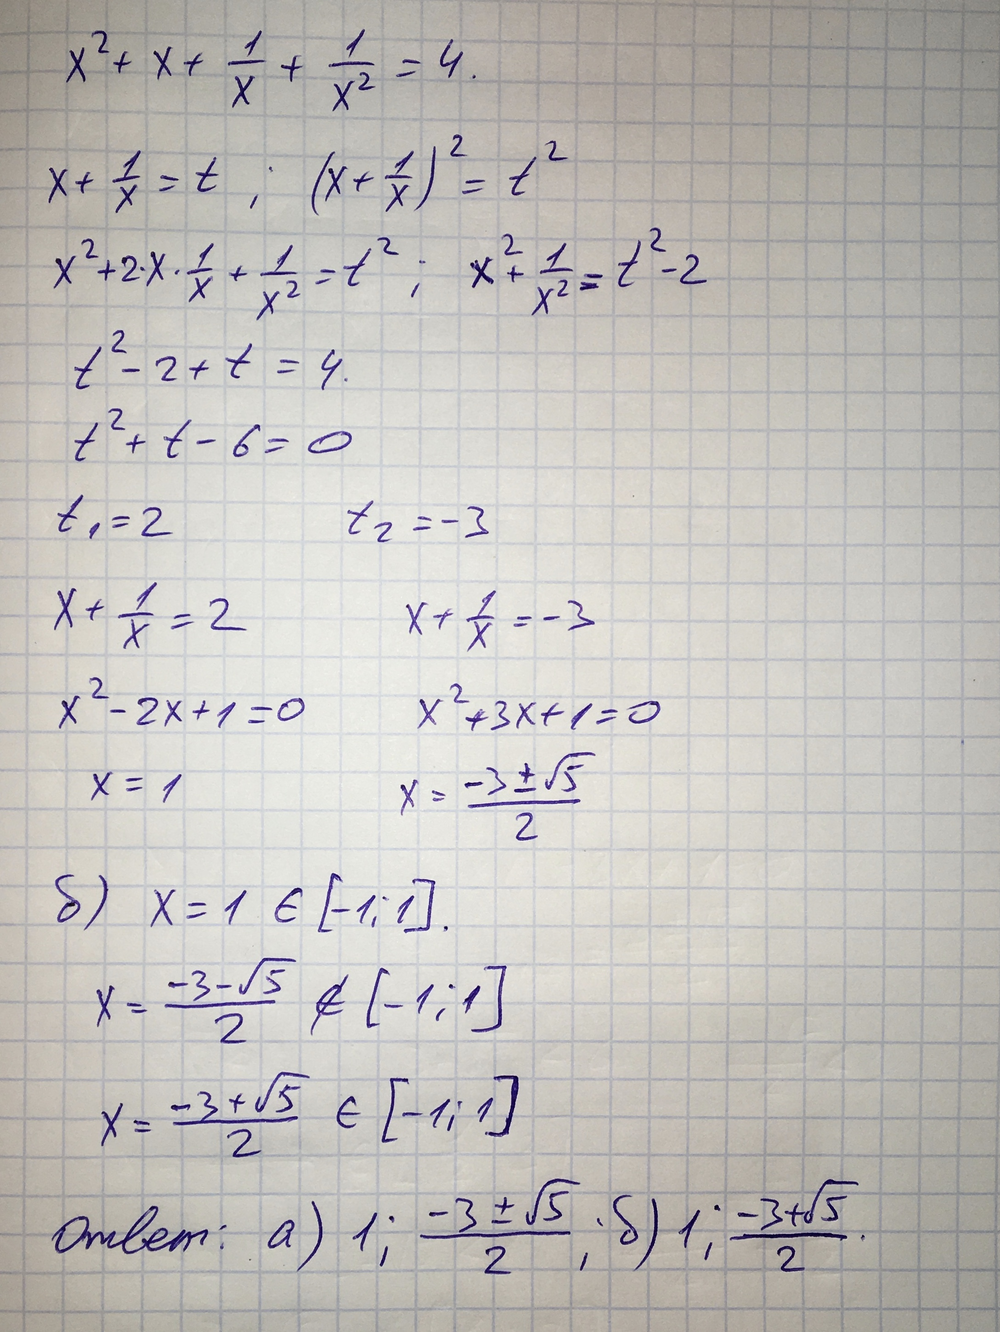 x² + x + 1/x + 1/x² = 4.
x + 1/x = t ; (x + 1/x)² = t²
x² + 2·x·1/x + 1/x² = t² ; x² + 1/x² = t² - 2
t² - 2 + t = 4.
t² + t - 6 = 0
t₁ = 2 t₂ = -3
x + 1/x = 2 x + 1/x = -3
x² - 2x + 1 = 0 x² + 3x + 1 = 0
x = 1 x = (-3 ± √5)/2
б) x = 1 ∈ [-1; 1].
x = (-3 - √5)/2 ∉ [-1; 1]
x = (-3 + √5)/2 ∈ [-1; 1]
Ответ: а) 1; (-3 ± √5)/2 ; б) 1; (-3 + √5)/2.